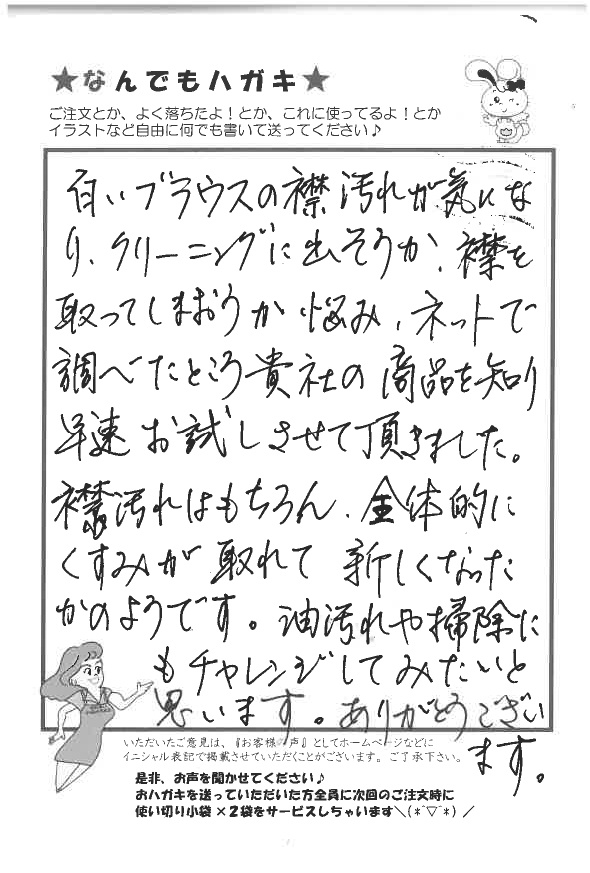 ★なんでもハガキ★
ご注文とか、よく落ちたよ！とか、これに使ってるよ！とか
イラストなど自由に何でも書いて送ってください♪
白いブラウスの襟汚れが気にな
り、クリーニングに出そうか、襟を
取ってしまおうか悩み、ネットで
調べたところ貴社の商品を知り
早速お試しさせて頂きました。
襟汚れはもちろん、全体的に
くすみが取れて新しくなった
かのようです。油汚れや掃除に
もチャレンジしてみたいと
思います。ありがとうござい
ます。
いただいたご意見は、『お客様の声』としてホームページなどに
イニシャル表記で掲載させていただくことがございます。ご了承下さい。
是非、お声を聞かせてください♪
おハガキを送っていただいた方全員に次回のご注文時に
使い切り小袋×2袋をサービスしちゃいます＼(*´▽`*)／